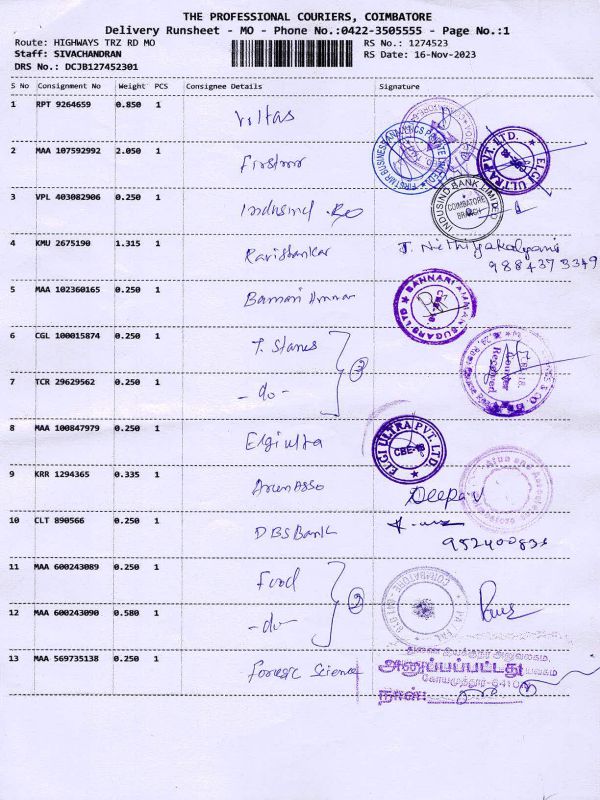 THE PROFESSIONAL COURIERS, COIMBATORE
Delivery Runsheet - MO - Phone No.:0422-3505555 - Page No.:1
Route: HIGHWAYS TRZ RD MO RS No.: 1274523
Staff: SIVACHANDRAN RS Date: 16-Nov-2023
DRS No.: DCJB127452301
S No Consignment No Weight PCS Consignee Details Signature
1 RPT 9264659 0.850 1 Voltas
2 MAA 107592992 2.050 1 Firstmr
FIRSTMR BUSINESS
ELGI ULTRA PVT. LTD.
3 VPL 403082906 0.250 1 Indusind
INDUSIND BANK LIMITED
COIMBATORE
BRANCH
4 KMU 2675190 1.315 1 Ravishankar
9884373349
5 MAA 102360165 0.250 1 Bannari Amman
BANNARI AMMAN SUGARS LTD
6 CGL 100015874 0.250 1 T. Stanes
7 TCR 29629562 0.250 1 - do -
Received
8 MAA 100847979 0.250 1 Elgi ultra
ELGI ULTRA PVT. LTD.
CBE-18
9 KRR 1294365 0.335 1 Arun Asso Deepa.V
10 CLT 890566 0.250 1 DBS Bank
11 MAA 600243089 0.250 1 Food
COIMBATORE
12 MAA 600243090 0.580 1 - do -
13 MAA 569735138 0.250 1 Forensic Science
அனுப்பப்பட்டது
நாள்: